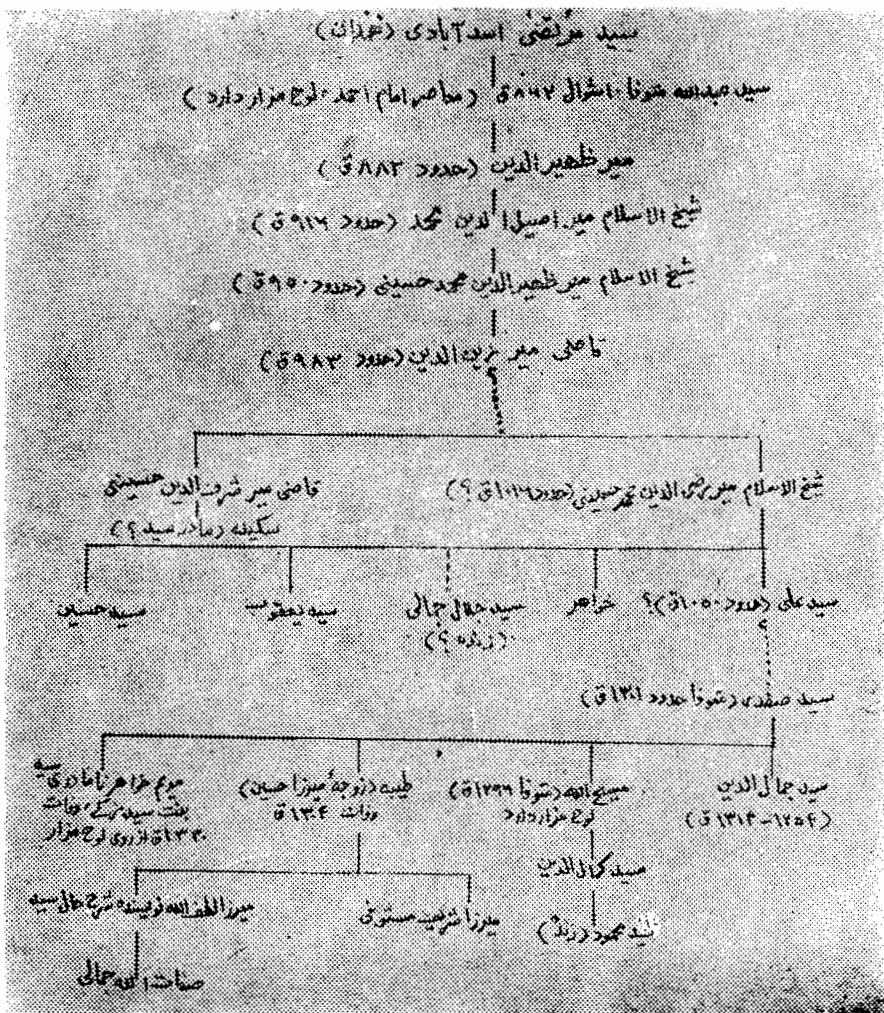 سید مرتضی اسدآبادی (همدان)
سید عبدالله متوفا ۱۰ شوال ۸۶۲ق (معاصر امام احمد - لوح مزار دارد)
میر ظهیرالدین (حدود ۸۸۲ق)
شیخ الاسلام میر اصیل الدین محمد (حدود ۹۱۶ق)
شیخ الاسلام میر ظهیرالدین محمد حسینی (حدود ۹۵۰ق)
قاضی میر زین الدین (حدود ۹۸۳ق)
؟
شیخ الاسلام میر رضی الدین محمد حسینی (حدود ۱۰۱۶ق؟)
قاضی میر شرف الدین حسینی
سکینه (مادر سید؟)
سید علی (حدود ۱۰۵۰ق)؟
خواهر
سید جلال جمالی
(زنده؟)
سید یعقوب
سید حسین
؟
سید صفدر (متوفا حدود ۱۳۰۱ق)
سید جمال الدین
(۱۲۵۴-۱۳۱۴ق)
مسیح الله (متوفا ۱۲۹۶ق)
لوح مزار دارد
طیبه (زوجه میرزا حسین)
وفات ۱۳۰۴ق
مریم خواهر سید
بنت سید وفات
از روی لوح مزار
سید کمال الدین
سید محمود (زنده)
میرزا شریف مستوفی
میرزا لطف الله نویسنده شرح حال سید
صفات الله جمالی